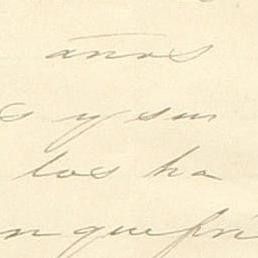 años
s y sus
los ha
n que fri